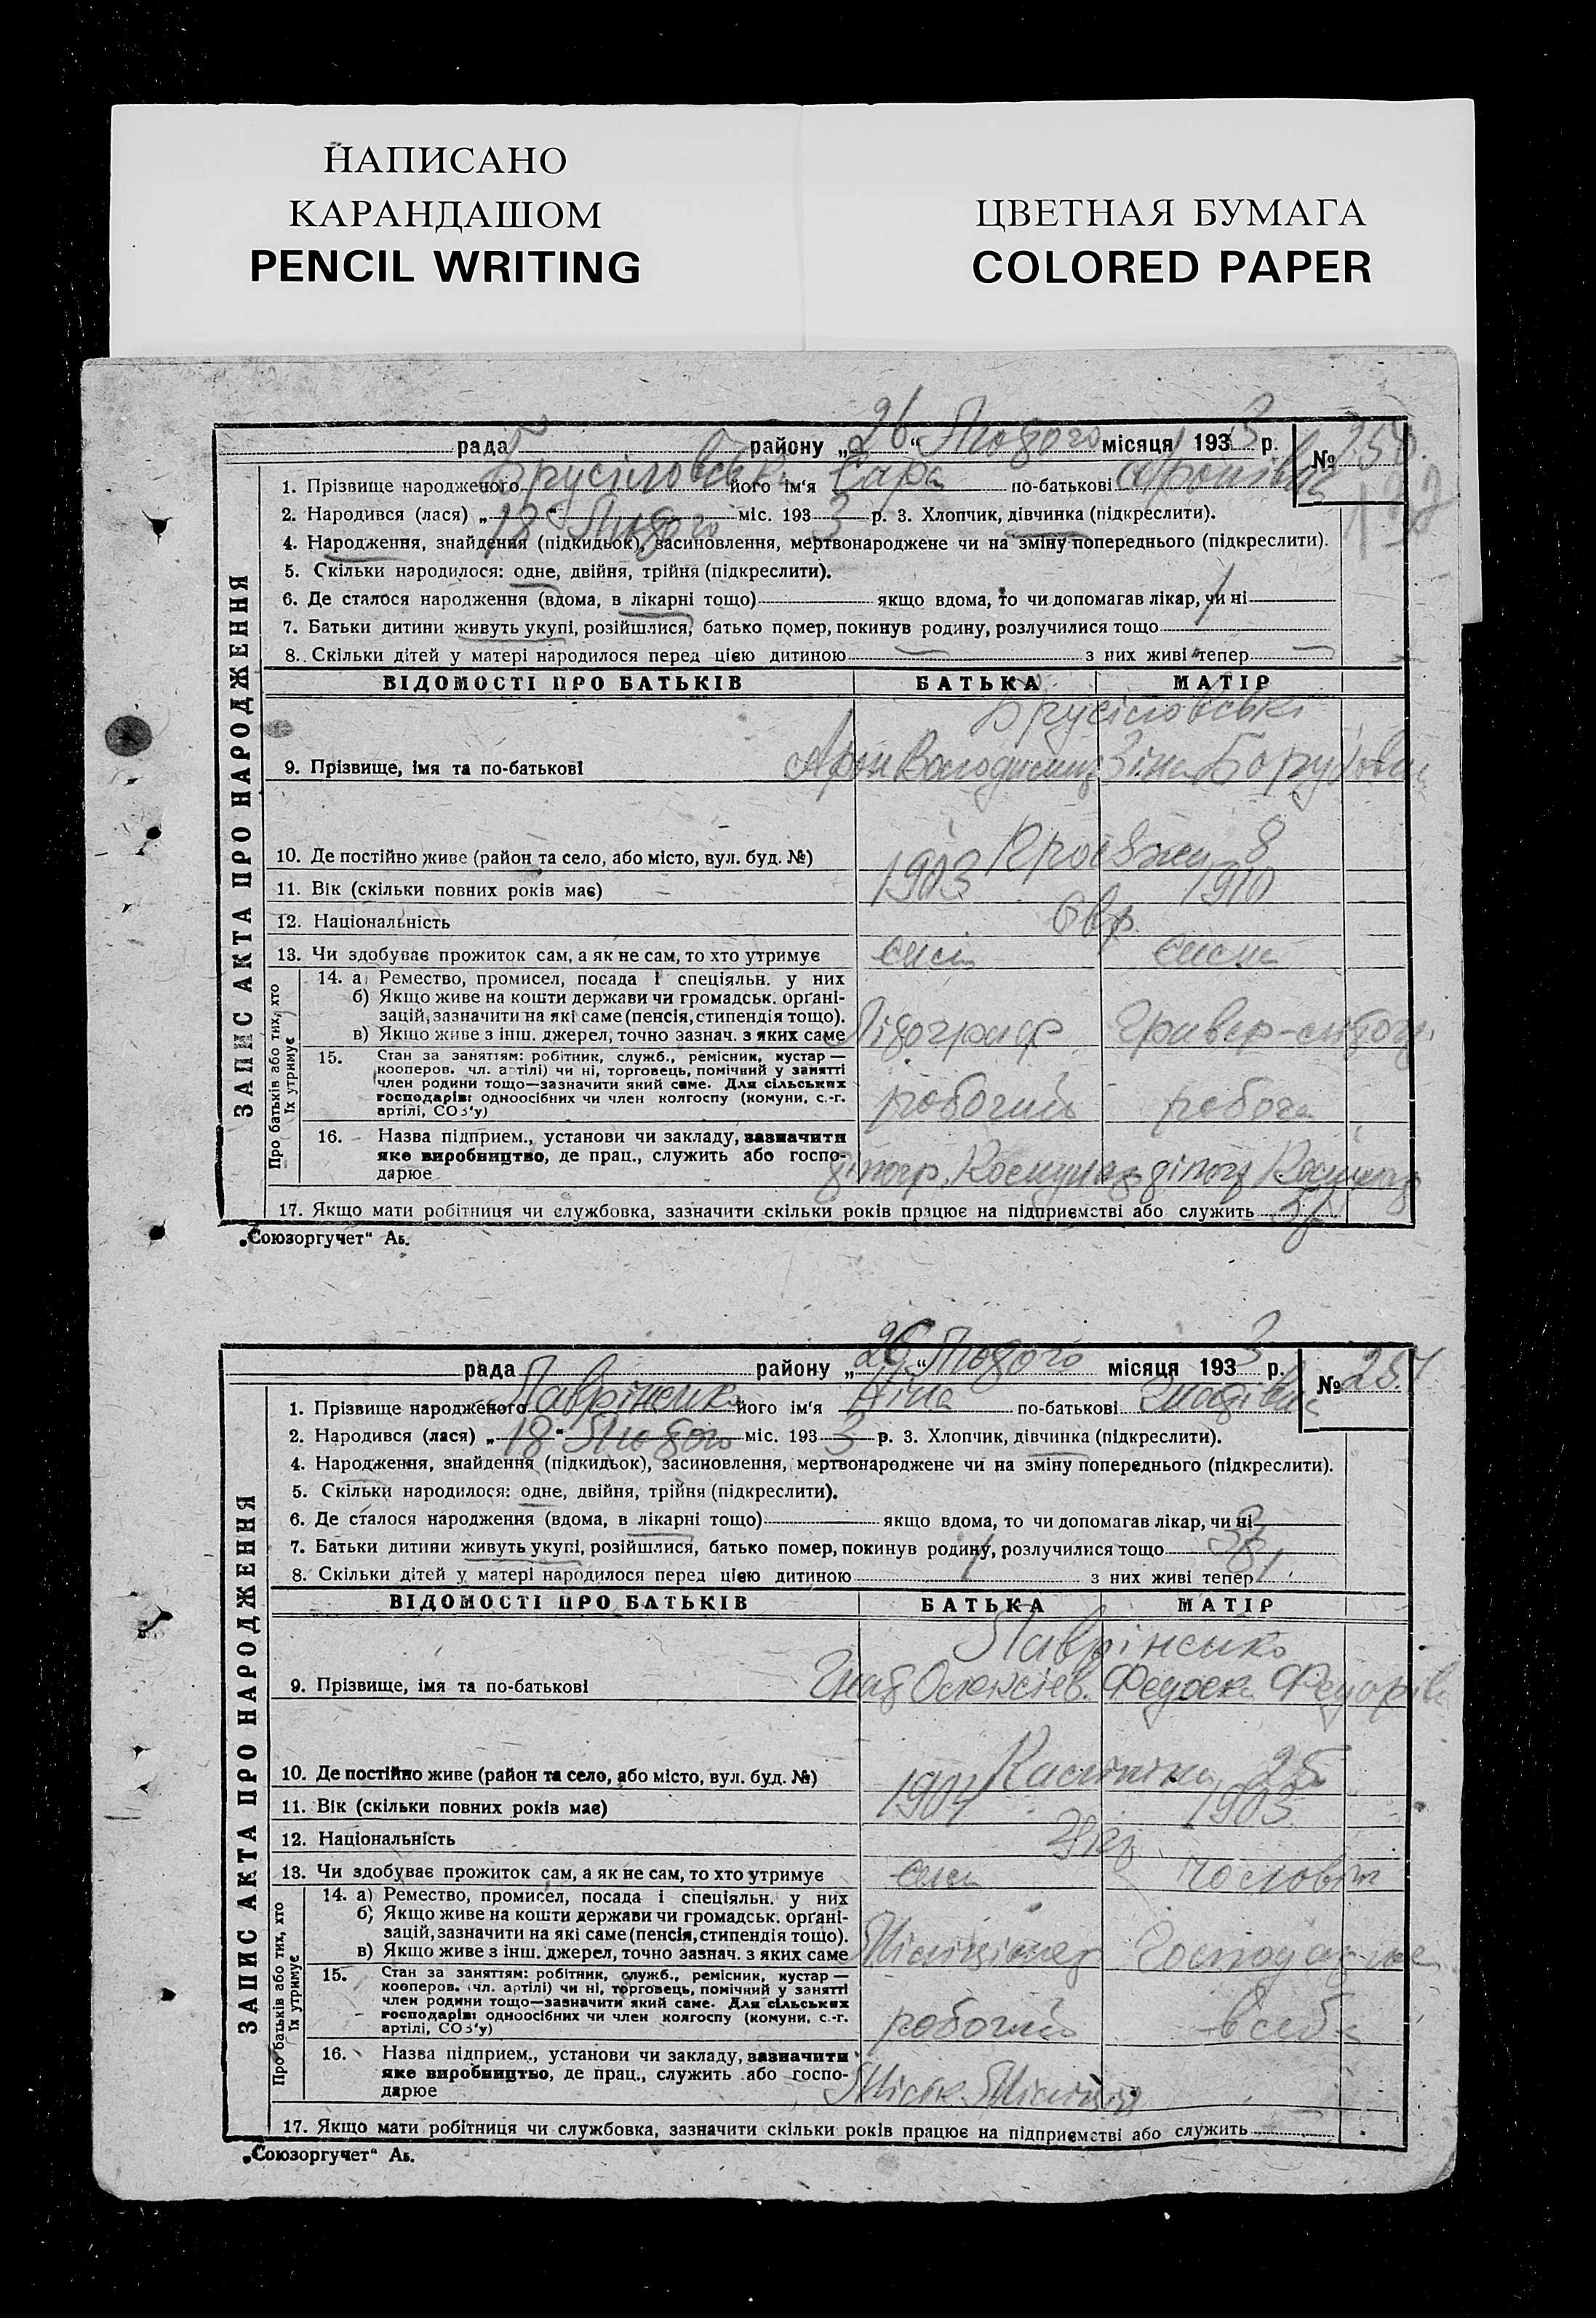 НАПИСАНО
КАРАНДАШОМ
PENCIL WRITING
ЦВЕТНАЯ БУМАГА
COLORED PAPER
рада району „26“ Лютого місяця 1933 р.
№ 250.
1. Прізвище народженого Брусіловська його ім'я Сара по-батькові Аронівна
2. Народився (лася) „18“ Лютого міс. 1933 р. 3. Хлопчик, дівчинка (підкреслити).
4. Народження, знайдення (підкидьок), засиновлення, мертвонароджене чи на зміну попереднього (підкреслити).
5. Скільки народилося: одне, двійня, трійня (підкреслити).
6. Де сталося народження (вдома, в лікарні тощо) якщо вдома, то чи допомагав лікар, чи ні
7. Батьки дитини живуть укупі, розійшлися, батько помер, покинув родину, розлучилися тощо
8. Скільки дітей у матері народилося перед цією дитиною — з них живі тепер —
ЗАПИС АКТА ПРО НАРОДЖЕННЯ
ВІДОМОСТІ ПРО БАТЬКІВ БАТЬКА МАТІР
Брусіловські
9. Прізвище, імя та по-батькові Арон Зіна
10. Де постійно живе (район та село, або місто, вул. буд. №) 8
11. Вік (скільки повних років має) 1903 1910
12. Національність Євр.
13. Чи здобуває прожиток сам, а як не сам, то хто утримує
Про батьків або тих, хто їх утримує
14. а) Ремество, промисел, посада і спеціяльн. у них
б) Якщо живе на кошти держави чи громадськ. орґані-
зацій, зазначити на які саме (пенсія, стипендія тощо).
в) Якщо живе з інш. джерел, точно зазнач. з яких саме Літограф
15. Стан за заняттям: робітник, служб., ремісник, кустар —
кооперов. чл. артілі) чи ні, торговець, помічний у занятті
член родини тощо—зазначити який саме. Для сільських
господарів: одноосібних чи член колгоспу (комуни, с.-г.
артілі, СОЗ'у) робочий робоча
16. Назва підприєм., установи чи закладу, зазначити
яке виробництво, де прац., служить або госпо-
дарює
17. Якщо мати робітниця чи службовка, зазначити скільки років працює на підприємстві або служить
„Союзоргучет“
рада району „26“ Лютого місяця 1933 р.
№ 251
1. Прізвище народженого Лавріненко його ім'я Ніна по-батькові Гнатівна
2. Народився (лася) „18“ Лютого міс. 1933 р. 3. Хлопчик, дівчинка (підкреслити).
4. Народження, знайдення (підкидьок), засиновлення, мертвонароджене чи на зміну попереднього (підкреслити).
5. Скільки народилося: одне, двійня, трійня (підкреслити).
6. Де сталося народження (вдома, в лікарні тощо) якщо вдома, то чи допомагав лікар, чи ні
7. Батьки дитини живуть укупі, розійшлися, батько помер, покинув родину, розлучилися тощо
8. Скільки дітей у матері народилося перед цією дитиною 1 з них живі тепер 1
ЗАПИС АКТА ПРО НАРОДЖЕННЯ
ВІДОМОСТІ ПРО БАТЬКІВ БАТЬКА МАТІР
Лавріненко
9. Прізвище, імя та по-батькові Гнат Федоска Федорівна
10. Де постійно живе (район та село, або місто, вул. буд. №) Калініна 25
11. Вік (скільки повних років має) 1904 1903
12. Національність Укр
13. Чи здобуває прожиток сам, а як не сам, то хто утримує сам чоловік
Про батьків або тих, хто їх утримує
14. а) Ремество, промисел, посада і спеціяльн. у них
б) Якщо живе на кошти держави чи громадськ. орґані-
зацій, зазначити на які саме (пенсія, стипендія тощо).
в) Якщо живе з інш. джерел, точно зазнач. з яких саме Міліціонер
15. Стан за заняттям: робітник, служб., ремісник, кустар —
кооперов. чл. артілі) чи ні, торговець, помічний у занятті
член родини тощо—зазначити який саме. Для сільських
господарів: одноосібних чи член колгоспу (комуни, с.-г.
артілі, СОЗ'у) робочий в себе
16. Назва підприєм., установи чи закладу, зазначити
яке виробництво, де прац., служить або госпо-
дарює Міськ. Міліція
17. Якщо мати робітниця чи службовка, зазначити скільки років працює на підприємстві або служить
„Союзоргучет“